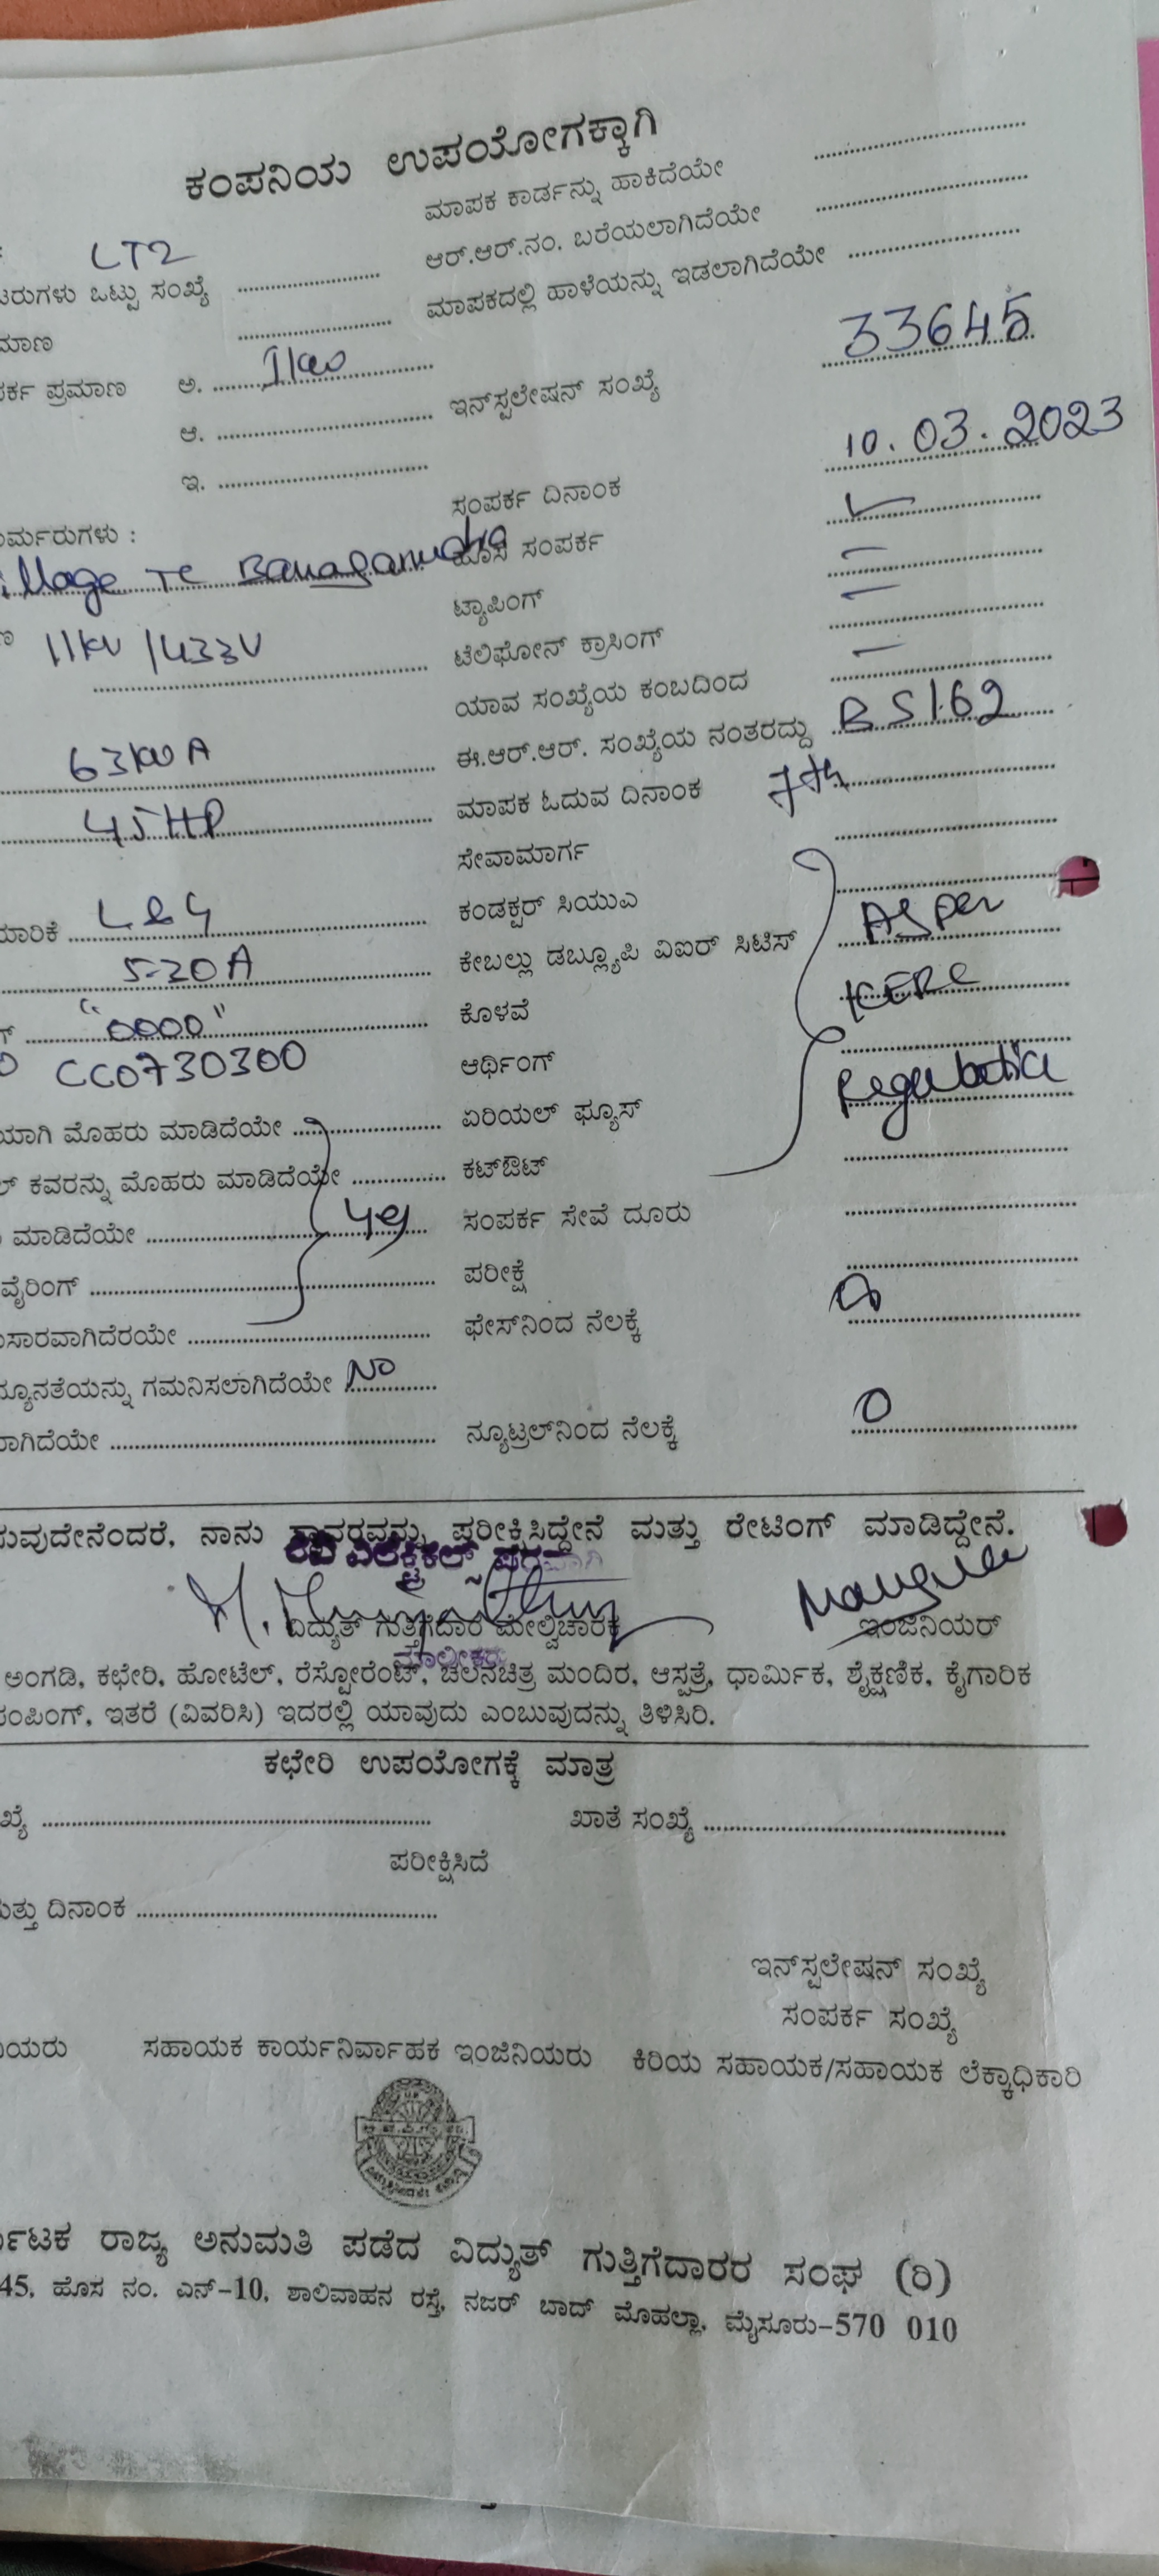 ಕಂಪನಿಯ ಉಪಯೋಗಕ್ಕಾಗಿ
ಮಾಪಕ ಕಾರ್ಡನ್ನು ಹಾಕಿದೆಯೇ
LT2
ಆರ್.ಆರ್.ನಂ. ಬರೆಯಲಾಗಿದೆಯೇ
ಟರುಗಳು ಒಟ್ಟು ಸಂಖ್ಯೆ
ಮಾಪಕದಲ್ಲಿ ಹಾಳೆಯನ್ನು ಇಡಲಾಗಿದೆಯೇ
ಮಾಣ
ಪರ್ಕ ಪ್ರಮಾಣ ಅ.
ಇನ್‌ಸ್ಟಲೇಷನ್ ಸಂಖ್ಯೆ 33645
ಆ.
ಇ.
ಸಂಪರ್ಕ ದಿನಾಂಕ 10.03.2023
ರ್ಮರುಗಳು :
ಹೊಸ ಸಂಪರ್ಕ
illage TC
ಟ್ಯಾಪಿಂಗ್
11KV/433V
ಟೆಲಿಫೋನ್ ಕ್ರಾಸಿಂಗ್
ಯಾವ ಸಂಖ್ಯೆಯ ಕಂಬದಿಂದ
63KVA
ಈ.ಆರ್.ಆರ್. ಸಂಖ್ಯೆಯ ನಂತರದ್ದು BS162
45HP
ಮಾಪಕ ಓದುವ ದಿನಾಂಕ 7th
ಸೇವಾಮಾರ್ಗ
ಯಾರಿಕೆ L&G
ಕಂಡಕ್ಟರ್ ಸಿಯುಎ
5-30A
ಕೇಬಲ್ಲು ಡಬ್ಲ್ಯೂಪಿ ವಿಐರ್ ಸಿಟಿಸ್ As per
"0000"
ಕೊಳವೆ KERC
CC0730300
ಆರ್ಥಿಂಗ್
ಯಾಗಿ ಮೊಹರು ಮಾಡಿದೆಯೇ
ಏರಿಯಲ್ ಫ್ಯೂಸ್
ಲ್ ಕವರನ್ನು ಮೊಹರು ಮಾಡಿದೆಯೇ
ಕಟ್‌ಔಟ್
ಮಾಡಿದೆಯೇ
ಸಂಪರ್ಕ ಸೇವೆ ದೂರು
ವೈರಿಂಗ್
ಪರೀಕ್ಷೆ
ಸಾರವಾಗಿದೆರಯೇ
ಫೇಸ್‌ನಿಂದ ನೆಲಕ್ಕೆ
ನ್ಯೂನತೆಯನ್ನು ಗಮನಿಸಲಾಗಿದೆಯೇ No
ವಾಗಿದೆಯೇ
ನ್ಯೂಟ್ರಲ್‌ನಿಂದ ನೆಲಕ್ಕೆ 0
ಸುವುದೇನೆಂದರೆ, ನಾನು ಸ್ಥಾವರವನ್ನು ಪರೀಕ್ಷಿಸಿದ್ದೇನೆ ಮತ್ತು ರೇಟಿಂಗ್ ಮಾಡಿದ್ದೇನೆ.
ವಿದ್ಯುತ್ ಗುತ್ತಿಗೆದಾರ ಮೇಲ್ವಿಚಾರಕ
ಇಂಜಿನಿಯರ್
ಅಂಗಡಿ, ಕಛೇರಿ, ಹೋಟೆಲ್, ರೆಸ್ಟೋರೆಂಟ್, ಚಲನಚಿತ್ರ ಮಂದಿರ, ಆಸ್ಪತ್ರೆ, ಧಾರ್ಮಿಕ, ಶೈಕ್ಷಣಿಕ, ಕೈಗಾರಿಕ
ಪಂಪಿಂಗ್, ಇತರೆ (ವಿವರಿಸಿ) ಇದರಲ್ಲಿ ಯಾವುದು ಎಂಬುವುದನ್ನು ತಿಳಿಸಿರಿ.
ಕಛೇರಿ ಉಪಯೋಗಕ್ಕೆ ಮಾತ್ರ
ಖ್ಯೆ
ಖಾತೆ ಸಂಖ್ಯೆ
ಪರೀಕ್ಷಿಸಿದೆ
ಮತ್ತು ದಿನಾಂಕ
ಇನ್‌ಸ್ಟಲೇಷನ್ ಸಂಖ್ಯೆ
ಸಂಪರ್ಕ ಸಂಖ್ಯೆ
ನಿಯರು ಸಹಾಯಕ ಕಾರ್ಯನಿರ್ವಾಹಕ ಇಂಜಿನಿಯರು ಕಿರಿಯ ಸಹಾಯಕ/ಸಹಾಯಕ ಲೆಕ್ಕಾಧಿಕಾರಿ
ರ್ನಾಟಕ ರಾಜ್ಯ ಅನುಮತಿ ಪಡೆದ ವಿದ್ಯುತ್ ಗುತ್ತಿಗೆದಾರರ ಸಂಘ (ರಿ)
45, ಹೊಸ ನಂ. ಎನ್-10, ಶಾಲಿವಾಹನ ರಸ್ತೆ, ನಜರ್ ಬಾದ್ ಮೊಹಲ್ಲಾ, ಮೈಸೂರು-570 010